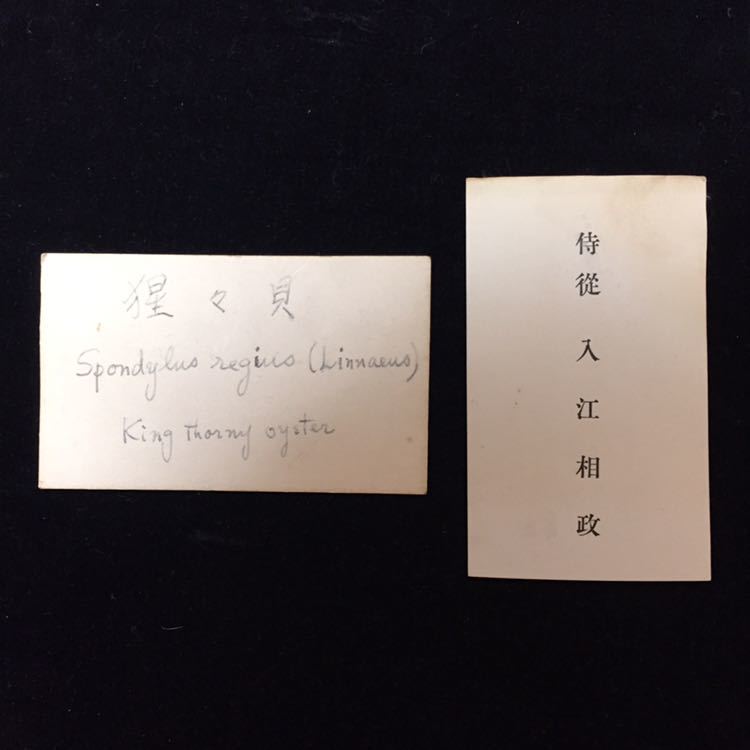 猩々貝
Spondylus regius (Linnaeus)
King thorny oyster
侍從 入江相政